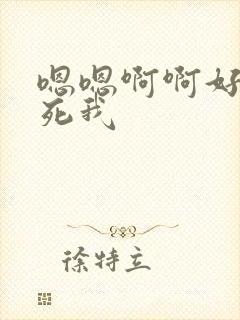 嗯嗯啊啊好
死我
徐特立